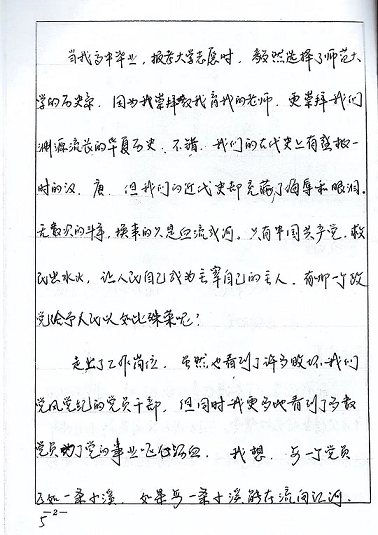 当我高中毕业，报考大学志愿时，毅然选择了师范大
学的历史系，因为我崇拜教我育我的老师，更崇拜我们
渊源流长的华夏历史，不错，我们的古代史上有盛极一
时的汉、唐，但我们的近代史却充满了侮辱和眼泪。
无数次的斗争，换来的只是血流成河，只有中国共产党，救
民出水火，让人民自己成为主宰自己的主人，有哪一个政
党给予人民以如此殊荣呢？
走上了工作岗位，虽然也看到了许多败坏我们
党风党纪的党员干部，但同时我更多地看到了多数
党员为了党的事业呕心沥血，我想，每一个党员
正如一条小溪，如果每一条小溪都在流向江河，
-2-
5